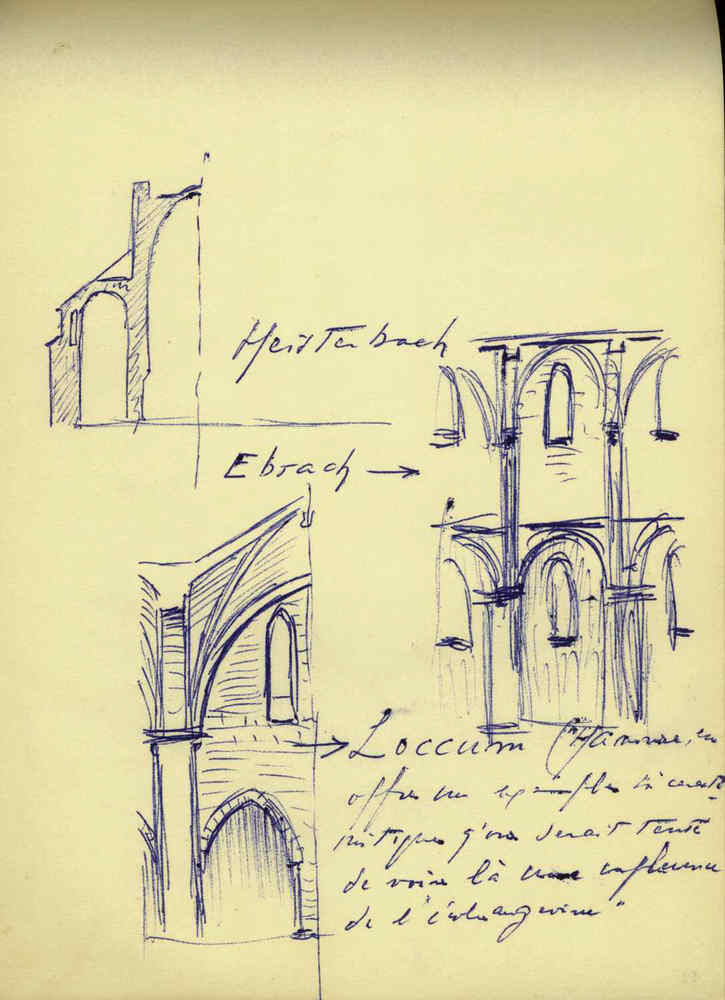 Heisterbach
Ebrach
Loccum (Hanovre, en
offre un exemple si caracté-
ristique q'on serait tenté
de voir là une influence
de l'"école angevine"